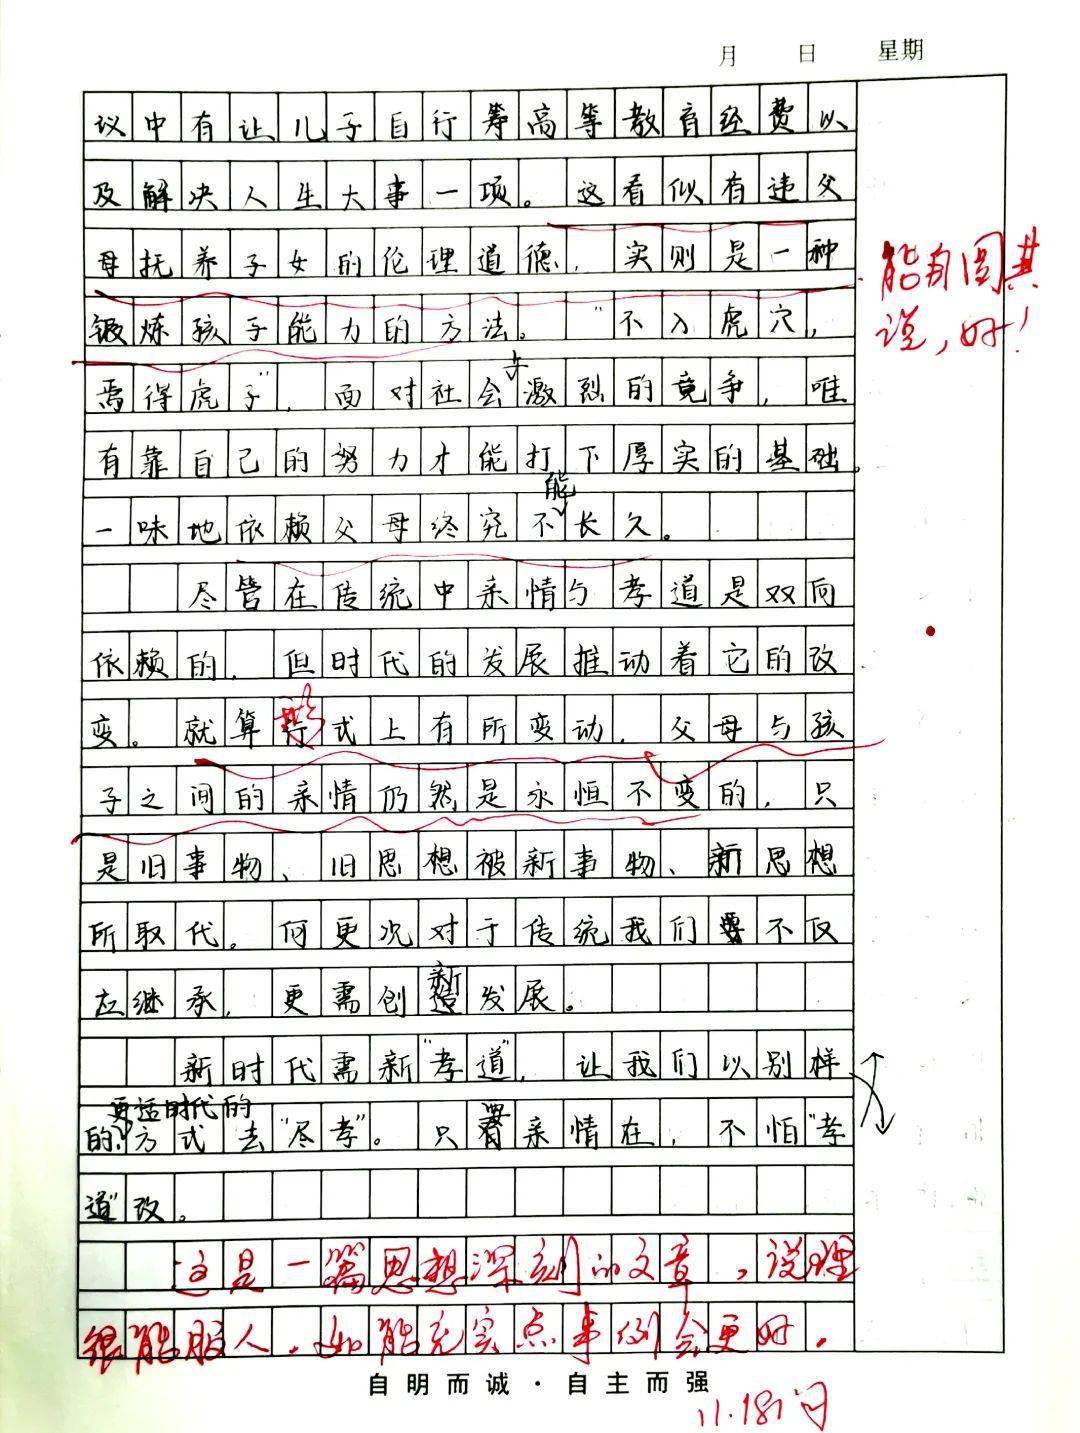 月 日 星期
议中有让儿子自行筹高等教育经费以
及解决人生大事一项。这看似有违父
母抚养子女的伦理道德，实则是一种
锻炼孩子能力的方法。“不入虎穴，
焉得虎子”，面对社会上激烈的竞争，唯
有靠自己的努力才能打下厚实的基础。
一味地依赖父母终究不能长久。
尽管在传统中亲情与孝道是双向
依赖的，但时代的发展推动着它的改
变。就算形式上有所变动，父母与孩
子之间的亲情仍然是永恒不变的，只
是旧事物、旧思想被新事物、新思想
所取代。何更况对于传统我们不仅
应继承，更需创新发展。
新时代需新“孝道”，让我们以别样
的更适时代的方式去“尽孝”。只要亲情在，不怕“孝
道”改。
能自圆其
说，好！
这是一篇思想深刻的文章，说理
很能服人。如能充实点事例会更好。
自明而诚·自主而强
11.18